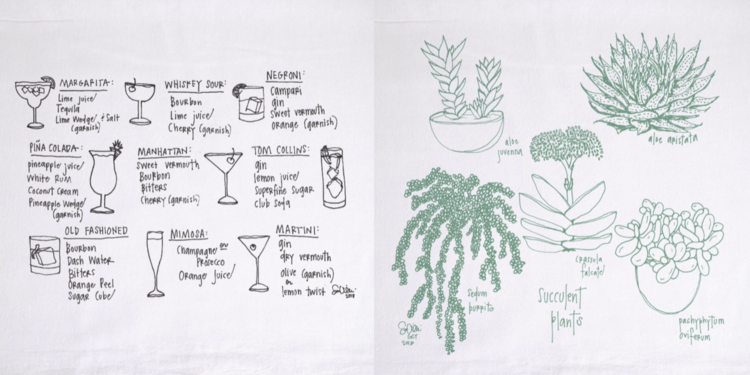 MARGARITA:
Lime juice
Tequila
Lime Wedge + Salt
(garnish)
WHISKEY SOUR:
Bourbon
Lime juice
Cherry (garnish)
NEGRONI:
Campari
gin
sweet vermouth
orange (garnish)
PIÑA COLADA:
pineapple juice
White Rum
Coconut Cream
Pineapple Wedge
(garnish)
MANHATTAN:
sweet vermouth
Bourbon
Bitters
Cherry (garnish)
TOM COLLINS:
gin
lemon juice
superfine sugar
club soda
OLD FASHIONED
Bourbon
Dash Water
Bitters
Orange Peel
Sugar Cube
MIMOSA:
Champagne or
Prosecco
Orange juice
MARTINI:
gin
dry vermouth
olive (garnish)
or
lemon twist
aloe
juvenna
aloe aristata
crassula
falcata
sedum
burrito
succulent
plants
pachyphytum
oviferum